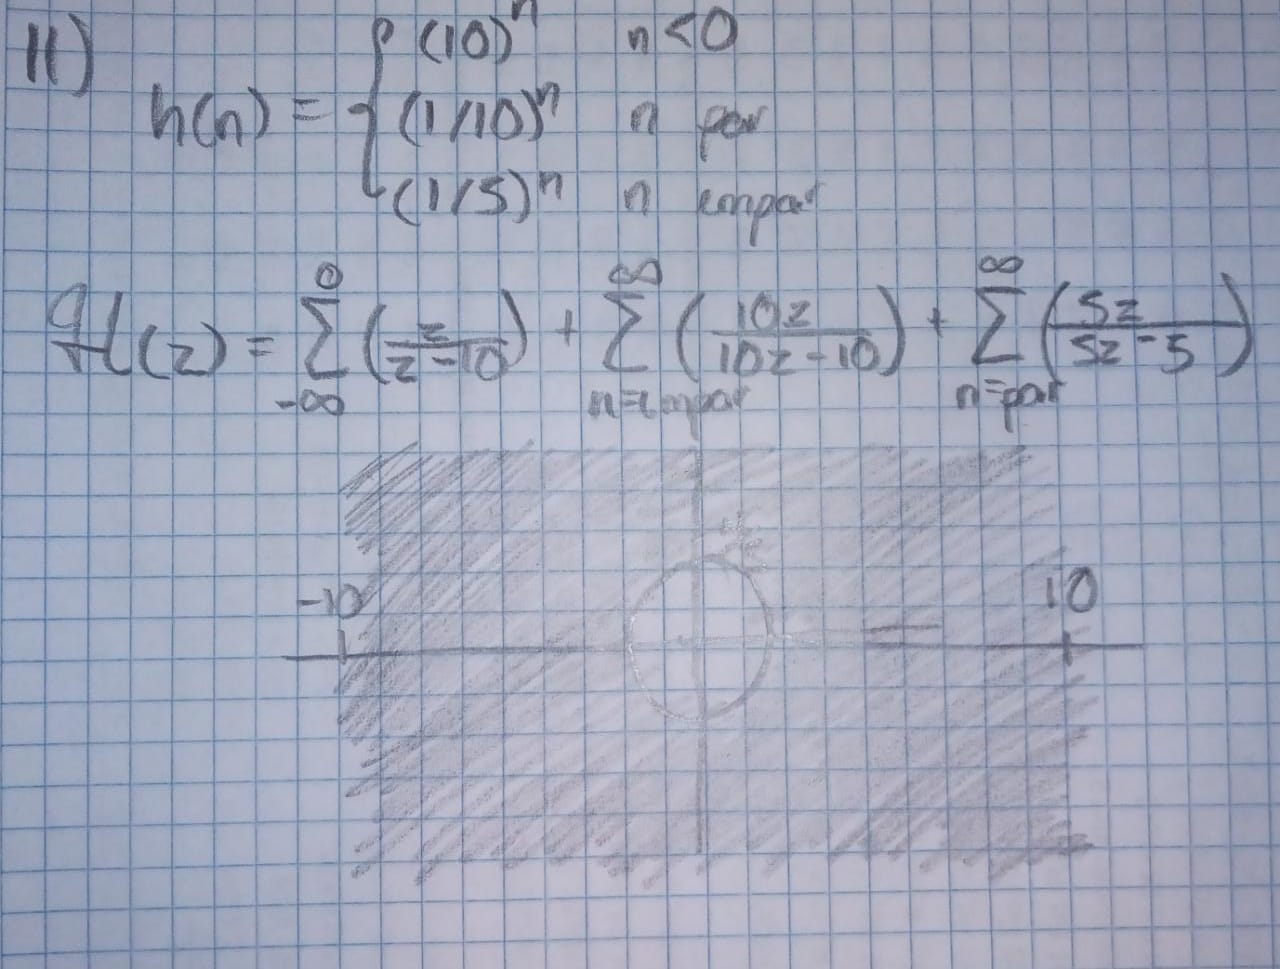 11)
h(n) = { (10)^n n<0
(1/10)^n n par
(1/5)^n n impar
H(z) = 0 Σ -∞ (z/z-10) + ∞ Σ n=impar (10z/10z-10) + ∞ Σ n=par (5z/5z-5)
-10 10